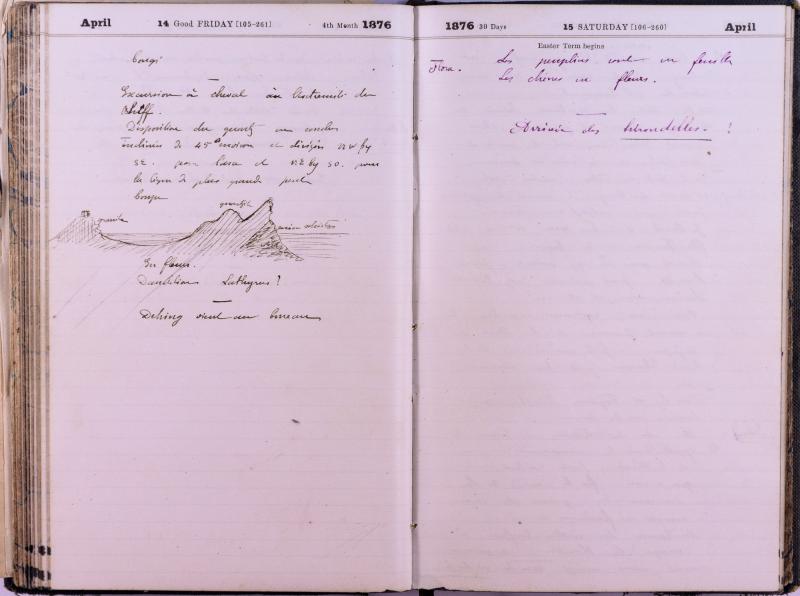 April 14 Good FRIDAY [105-261] 4th Month 1876
Congé
Excursion à cheval à l'extrémité du
Bluff.
Disposition du quartz en couches
inclinées de 45° environ et dirigées NW by
SE. pour base et NE by SO. pour
la ligne de plus grande pente
granite
quartzite
En fleurs.
Dandelion Lathyrus?
Dehing vient au bureau
1876 30 Days 15 SATURDAY [106-260] April
Easter Term begins
Flora. Les peupliers sont en feuilles
Les chênes en fleurs.
Arrivée des hirondelles. ?